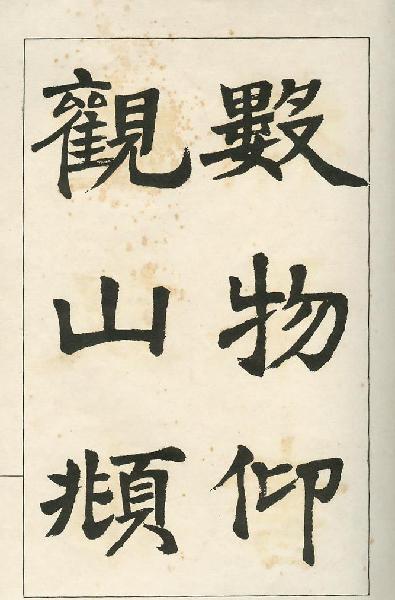 數物仰
觀山頫